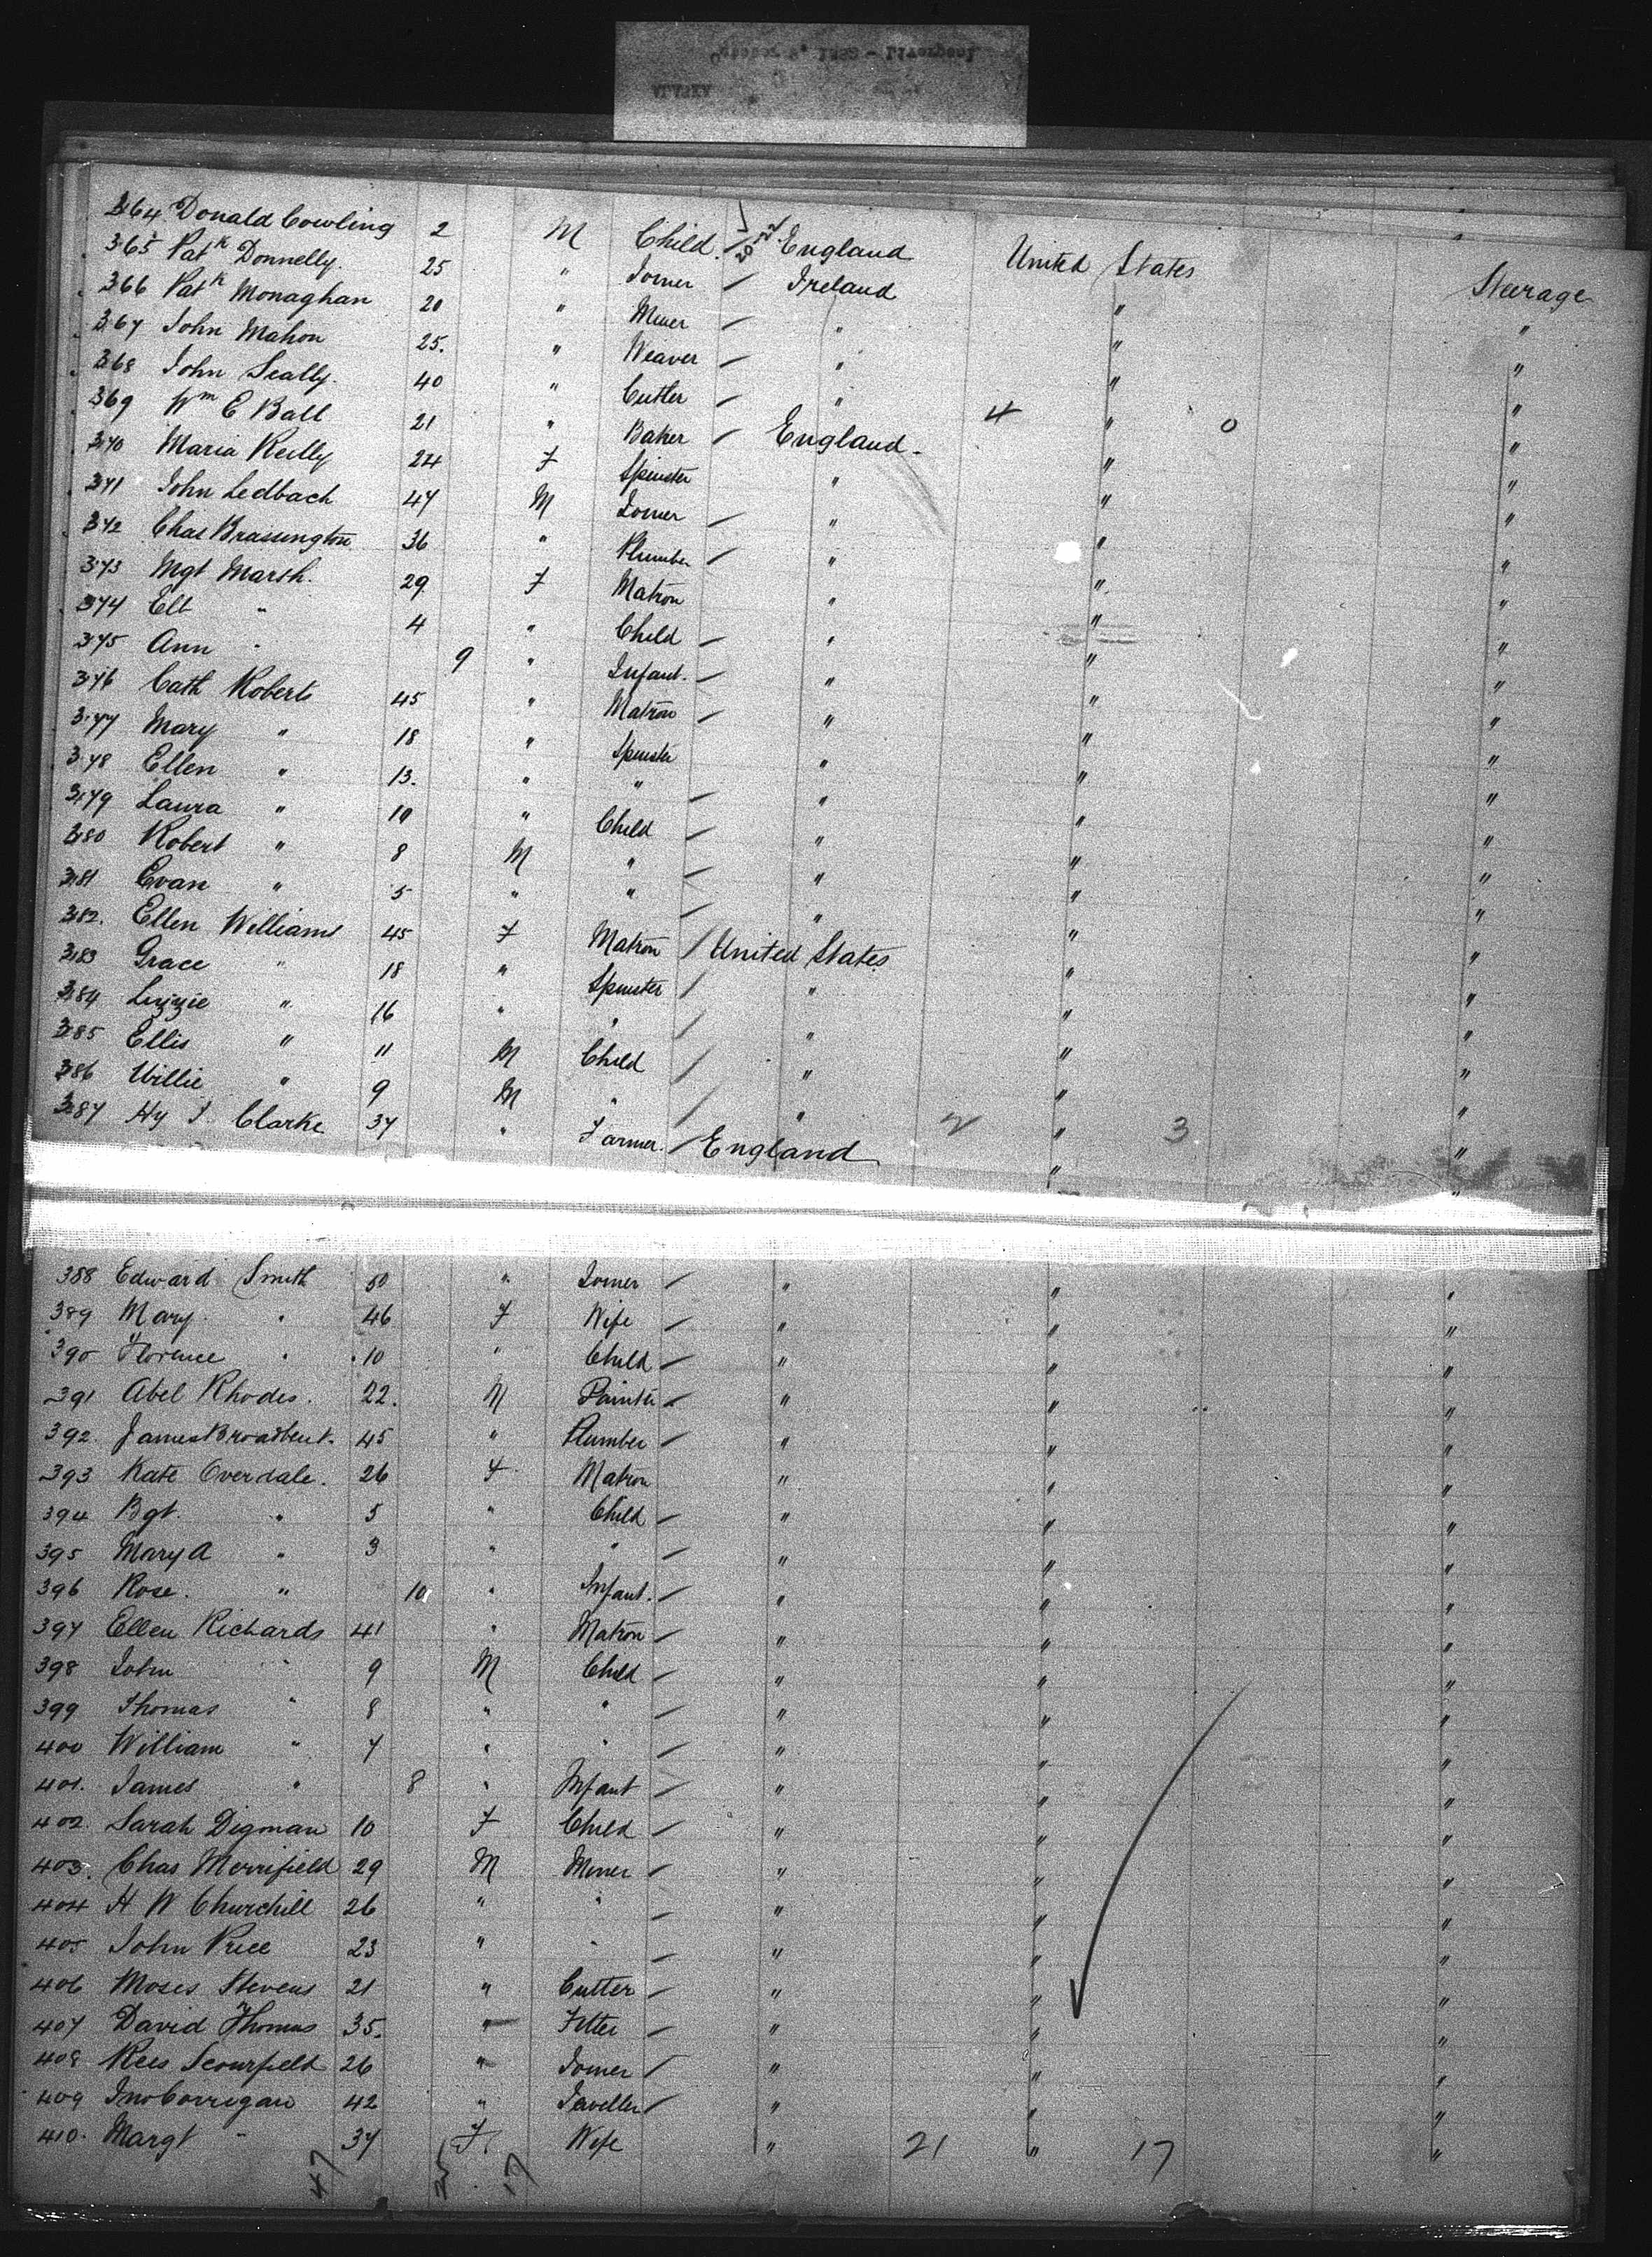 364 Donald Cowling 2 M Child England United States Steerage
365 Patk Donnelly. 25 " Joiner Ireland " "
366 Patk Monaghan 20 " Miner " " "
367 John Mahon 25. " Weaver " " "
368 John Scally. 40 " Cutler " " "
369 Wm E Ball 21 " Baker England 4 " 0 "
370 Maria Reilly 24 F Spinster " " "
371 John Ledbach 47 M Joiner " " "
372 Chas Brassington 36 " Plumber " " "
373 Mgt Marsh. 29 F Matron " " "
374 " 4 " Child " " "
375 Ann " 9 " Infant. " " "
376 Cath Roberts 45 " Matron " " "
377 Mary " 18 " Spinster " " "
378 Ellen " 13. " " " " "
379 Laura " 10 " Child " " "
380 Robert " 8 M " " " "
381 Evan " 5 " " " " "
382. Ellen Williams 45 F Matron United States " "
383 Grace " 18 " Spinster " " "
384 Lizzie " 16 " " " " "
385 Ellis " 11 M Child " " "
386 Willie " 9 M " " " "
387 Hy J Clarke 37 " Farmer. England 2 " 3 "
388 Edward Smith 50 " Joiner " " "
389 Mary " 46 F Wife " " "
390 Florence " 10 " Child " " "
391 Abel Rhodes. 22. M Painter " " "
392. James Broadbent. 45 " Plumber " " "
393 Kate Overdale. 26 F Matron " " "
394 Bgt. " 5 " Child " " "
395 Mary A " 3 " " " " "
396 Rose. " 10 " Infant. " " "
397 Ellen Richards 41 " Matron " " "
398 John " 9 M Child " " "
399 Thomas " 8 " " " " "
400 William " 7 " " " " "
401. James " 8 " Infant " " "
402. Sarah Digman 10 F Child " " "
403. Chas Merrifield 29 M Miner " " "
404 H W Churchill 26 " " " " "
405 John Price 23 " " " " "
406 Moses Stevens 21 " Cutter " " "
407 David Thomas 35. " Fitter " " "
408 Rees Scourfield 26 " Joiner " " "
409 Jno Corrigan 42 " " " "
410. Margt " 37 F. Wife " 21 " 17 "
47 17